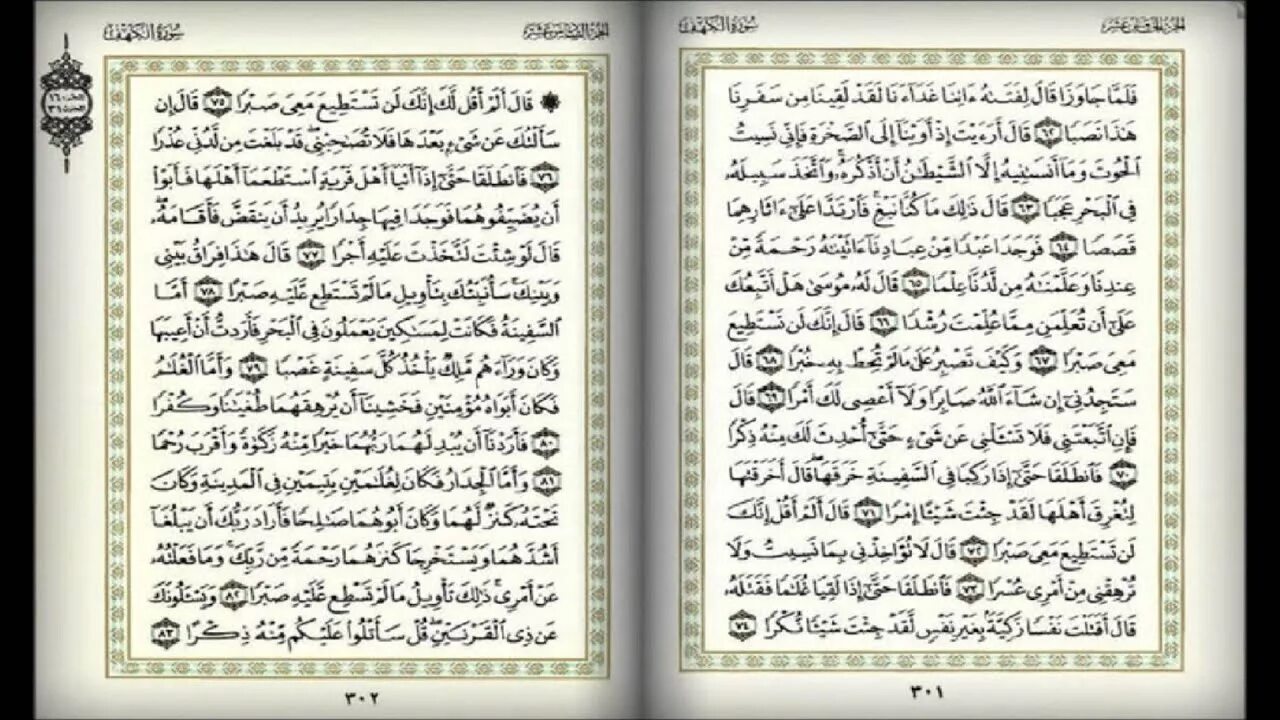 الجزء الخامس عشر
سورة الكهف
فَلَمَّا جَاوَزَا قَالَ لِفَتَىٰهُ ءَاتِنَا غَدَآءَنَا لَقَدْ لَقِينَا مِن سَفَرِنَا
هَٰذَا نَصَبًا ٦٢ قَالَ أَرَءَيْتَ إِذْ أَوَيْنَآ إِلَى ٱلصَّخْرَةِ فَإِنِّي نَسِيتُ
ٱلْحُوتَ وَمَآ أَنسَىٰنِيهُ إِلَّا ٱلشَّيْطَٰنُ أَنْ أَذْكُرَهُۥ ۚ وَٱتَّخَذَ سَبِيلَهُۥ
فِي ٱلْبَحْرِ عَجَبًا ٦٣ قَالَ ذَٰلِكَ مَا كُنَّا نَبْغِ ۚ فَٱرْتَدَّا عَلَىٰٓ ءَاثَارِهِمَا
قَصَصًا ٦٤ فَوَجَدَا عَبْدًا مِّنْ عِبَادِنَآ ءَاتَيْنَٰهُ رَحْمَةً مِّنْ
عِندِنَا وَعَلَّمْنَٰهُ مِن لَّدُنَّا عِلْمًا ٦٥ قَالَ لَهُۥ مُوسَىٰ هَلْ أَتَّبِعُكَ
عَلَىٰٓ أَن تُعَلِّمَنِ مِمَّا عُلِّمْتَ رُشْدًا ٦٦ قَالَ إِنَّكَ لَن تَسْتَطِيعَ
مَعِيَ صَبْرًا ٦٧ وَكَيْفَ تَصْبِرُ عَلَىٰ مَا لَمْ تُحِطْ بِهِۦ خُبْرًا ٦٨ قَالَ
سَتَجِدُنِيٓ إِن شَآءَ ٱللَّهُ صَابِرًا وَلَآ أَعْصِي لَكَ أَمْرًا ٦٩ قَالَ
فَإِنِ ٱتَّبَعْتَنِي فَلَا تَسْـَٔلْنِي عَن شَيْءٍ حَتَّىٰٓ أُحْدِثَ لَكَ مِنْهُ ذِكْرًا
٧٠ فَٱنطَلَقَا حَتَّىٰٓ إِذَا رَكِبَا فِي ٱلسَّفِينَةِ خَرَقَهَا ۖ قَالَ أَخَرَقْتَهَا
لِتُغْرِقَ أَهْلَهَا لَقَدْ جِئْتَ شَيْـًٔا إِمْرًا ٧١ قَالَ أَلَمْ أَقُلْ إِنَّكَ
لَن تَسْتَطِيعَ مَعِيَ صَبْرًا ٧٢ قَالَ لَا تُؤَاخِذْنِي بِمَا نَسِيتُ وَلَا
تُرْهِقْنِي مِنْ أَمْرِي عُسْرًا ٧٣ فَٱنطَلَقَا حَتَّىٰٓ إِذَا لَقِيَا غُلَٰمًا فَقَتَلَهُۥ
قَالَ أَقَتَلْتَ نَفْسًا زَكِيَّةًۢ بِغَيْرِ نَفْسٍ لَّقَدْ جِئْتَ شَيْـًٔا نُّكْرًا ٧٤
٣٠١
الجزء السادس عشر
سورة الكهف
۞ قَالَ أَلَمْ أَقُل لَّكَ إِنَّكَ لَن تَسْتَطِيعَ مَعِيَ صَبْرًا ٧٥ قَالَ إِن
سَأَلْتُكَ عَن شَيْءٍۭ بَعْدَهَا فَلَا تُصَٰحِبْنِي ۖ قَدْ بَلَغْتَ مِن لَّدُنِّي عُذْرًا
٧٦ فَٱنطَلَقَا حَتَّىٰٓ إِذَآ أَتَيَآ أَهْلَ قَرْيَةٍ ٱسْتَطْعَمَآ أَهْلَهَا فَأَبَوْا۟
أَن يُضَيِّفُوهُمَا فَوَجَدَا فِيهَا جِدَارًا يُرِيدُ أَن يَنقَضَّ فَأَقَامَهُۥ ۖ
قَالَ لَوْ شِئْتَ لَتَّخَذْتَ عَلَيْهِ أَجْرًا ٧٧ قَالَ هَٰذَا فِرَاقُ بَيْنِي
وَبَيْنِكَ ۚ سَأُنَبِّئُكَ بِتَأْوِيلِ مَا لَمْ تَسْتَطِع عَّلَيْهِ صَبْرًا ٧٨ أَمَّا
ٱلسَّفِينَةُ فَكَانَتْ لِمَسَٰكِينَ يَعْمَلُونَ فِي ٱلْبَحْرِ فَأَرَدتُّ أَنْ أَعِيبَهَا
وَكَانَ وَرَآءَهُم مَّلِكٌ يَأْخُذُ كُلَّ سَفِينَةٍ غَصْبًا ٧٩ وَأَمَّا ٱلْغُلَٰمُ
فَكَانَ أَبَوَاهُ مُؤْمِنَيْنِ فَخَشِينَآ أَن يُرْهِقَهُمَا طُغْيَٰنًا وَكُفْرًا
٨٠ فَأَرَدْنَآ أَن يُبْدِلَهُمَا رَبُّهُمَا خَيْرًا مِّنْهُ زَكَوٰةً وَأَقْرَبَ رُحْمًا
٨١ وَأَمَّا ٱلْجِدَارُ فَكَانَ لِغُلَٰمَيْنِ يَتِيمَيْنِ فِي ٱلْمَدِينَةِ وَكَانَ
تَحْتَهُۥ كَنزٌ لَّهُمَا وَكَانَ أَبُوهُمَا صَٰلِحًا فَأَرَادَ رَبُّكَ أَن يَبْلُغَآ
أَشُدَّهُمَا وَيَسْتَخْرِجَا كَنزَهُمَا رَحْمَةً مِّن رَّبِّكَ ۚ وَمَا فَعَلْتُهُۥ
عَنْ أَمْرِي ۚ ذَٰلِكَ تَأْوِيلُ مَا لَمْ تَسْطِع عَّلَيْهِ صَبْرًا ٨٢ وَيَسْـَٔلُونَكَ
عَن ذِي ٱلْقَرْنَيْنِ ۖ قُلْ سَأَتْلُوا۟ عَلَيْكُم مِّنْهُ ذِكْرًا ٨٣
٣٠٢